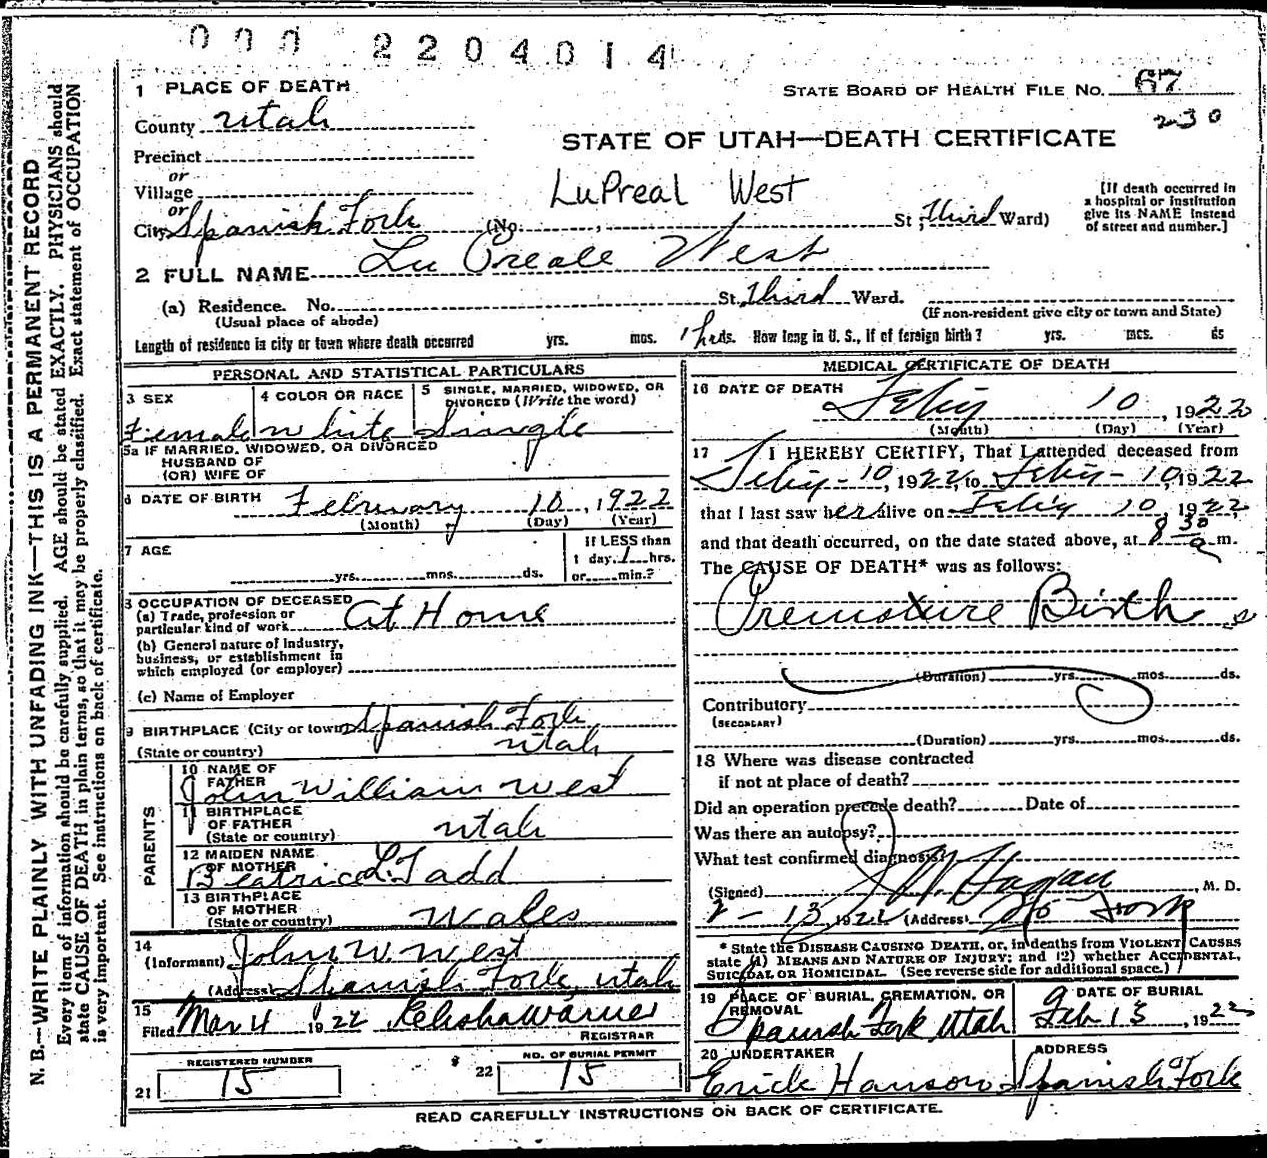 000 2204014
1 PLACE OF DEATH
STATE BOARD OF HEALTH FILE No. 67
230
County Utah
STATE OF UTAH—DEATH CERTIFICATE
Precinct
or
Village
LuPreal West
[If death occurred in
a hospital or institution
give its NAME instead
of street and number.]
or
City Spanish Fork (No. , St; Third Ward)
2 FULL NAME Lu Preale West
(a) Residence. No. St. Third Ward.
(Usual place of abode) (If non-resident give city or town and State)
Length of residence in city or town where death occurred yrs. mos. 1 hr ds. How long in U. S., if of foreign birth? yrs. mos. ds
PERSONAL AND STATISTICAL PARTICULARS
3 SEX 4 COLOR OR RACE 5 SINGLE, MARRIED, WIDOWED, OR
DIVORCED (Write the word)
Female White Single
5a IF MARRIED, WIDOWED, OR DIVORCED
HUSBAND OF
(OR) WIFE OF
6 DATE OF BIRTH February 10, 1922
(Month) (Day) (Year)
7 AGE If LESS than
1 day, 1 hrs.
yrs. mos. ds. or min.?
8 OCCUPATION OF DECEASED
(a) Trade, profession or
particular kind of work At Home
(b) General nature of Industry,
business, or establishment in
which employed (or employer)
(c) Name of Employer
9 BIRTHPLACE (City or town) Spanish Fork
(State or country) Utah
PARENTS
10 NAME OF
FATHER John William West
11 BIRTHPLACE
OF FATHER
(State or country) Utah
12 MAIDEN NAME
OF MOTHER Beatrice L. Tadd
13 BIRTHPLACE
OF MOTHER
(State or country) Wales
14
(Informant) John W. West
(Address) Spanish Fork, Utah
15
Filed Mar 4 1922 Elisha Warner
REGISTRAR
REGISTERED NUMBER
21 15
NO. OF BURIAL PERMIT
22 15
MEDICAL CERTIFICATE OF DEATH
16 DATE OF DEATH Feb'y 10, 1922
(Month) (Day) (Year)
17 I HEREBY CERTIFY, That I attended deceased from
Feb'y - 10, 1922, to Feb'y - 10, 1922
that I last saw her alive on Feb'y 10, 1922,
and that death occurred, on the date stated above, at 8 30 a m.
The CAUSE OF DEATH* was as follows:
Premature Birth
(Duration) yrs. mos. ds.
Contributory
(SECONDARY)
(Duration) yrs. mos. ds.
18 Where was disease contracted
if not at place of death?
Did an operation precede death? Date of
Was there an autopsy?
What test confirmed diagnosis?
(Signed) J. W. Hagan, M. D.
2 - 13, 1922 (Address) Sp Fork
* State the DISEASE CAUSING DEATH, or, in deaths from VIOLENT CAUSES
state (1) MEANS AND NATURE OF INJURY; and (2) whether ACCIDENTAL,
SUICIDAL OR HOMICIDAL. (See reverse side for additional space.)
19 PLACE OF BURIAL, CREMATION, OR
REMOVAL
DATE OF BURIAL
Spanish Fork Utah Feb 13, 1922
20 UNDERTAKER ADDRESS
Erick Hanson Spanish Fork
READ CAREFULLY INSTRUCTIONS ON BACK OF CERTIFICATE.
N. B.—WRITE PLAINLY WITH UNFADING INK—THIS IS A PERMANENT RECORD
Every item of information should be carefully supplied. AGE should be stated EXACTLY. PHYSICIANS should
state CAUSE OF DEATH in plain terms, so that it may be properly classified. Exact statement of OCCUPATION
is very important. See instructions on back of certificate.